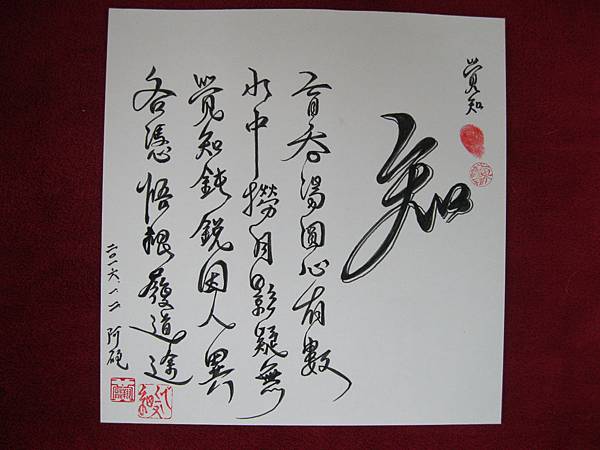 覺知
知
盲吞湯圓心有數
水中撈月影疑無
覺知鈍銳因人異
各憑悟根發道途
二〇一六 阿